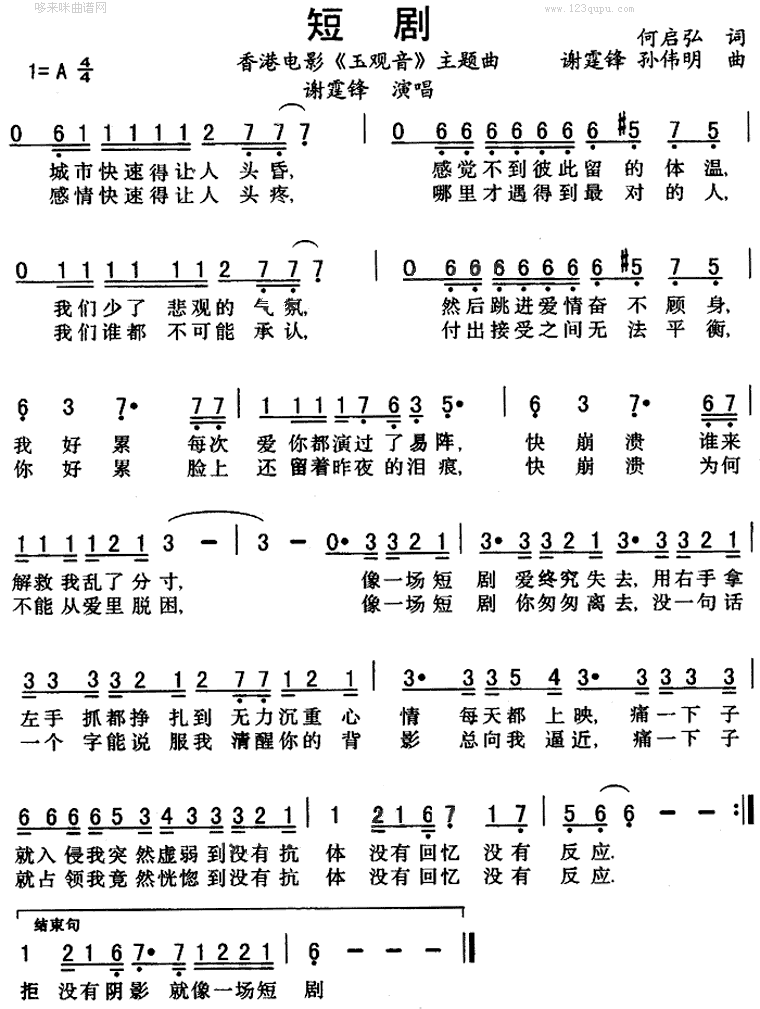 哆来咪曲谱网
© www.123qupu.com
短 剧
1=A 4/4
香港电影《玉观音》主题曲
何启弘 词
谢霆锋 孙伟明 曲
谢霆锋 演唱
0 6 1 1 1 1 1 2 7 7 7 | 0 6 6 6 6 6 6 6 #5 7 5 |
城市快速得让人 头昏, 感觉不到彼此留 的 体温,
感情快速得让人 头疼, 哪里才遇得到最 对 的人,
0 1 1 1 1 1 1 2 7 7 7 | 0 6 6 6 6 6 6 6 #5 7 5 |
我们少了 悲观的 气氛, 然后跳进爱情奋 不 顾身,
我们谁都 不可能 承认, 付出接受之间无 法 平衡,
6 3 7• 7 7 | 1 1 1 1 7 6 3 5• | 6 3 7• 6 7 |
我 好 累 每次 爱你都演过了易阵, 快 崩 溃 谁来
你 好 累 脸上 还留着昨夜的泪痕, 快 崩 溃 为何
1 1 1 1 2 1 3 – | 3 – 0• 3 3 2 1 | 3• 3 3 2 1 3• 3 3 2 1 |
解救我乱了分寸, 像一场短 剧 爱终究失去,用右手拿
不能从爱里脱困, 像一场短 剧 你匆匆离去,没一句话
3 3 3 3 2 1 2 7 7 1 2 1 | 3• 3 3 5 4 3• 3 3 3 3 |
左手 抓都挣 扎到 无力沉重 心 情 每天都 上映, 痛一下子
一个 字能说 服我 清醒你的 背 影 总向我 逼近, 痛一下子
6 6 6 6 5 3 4 3 3 3 2 1 | 1 2 1 6 7 1 7 | 5 6 6 – – :‖
就入 侵我突然虚弱到没有抗 体 没有回忆 没有 反应.
就占 领我竟然恍惚到没有抗 体 没有回忆 没有 反应.
结束句
1 2 1 6 7• 7 1 2 2 1 | 6 – – – ‖
拒 没有阴影 就像一场短 剧